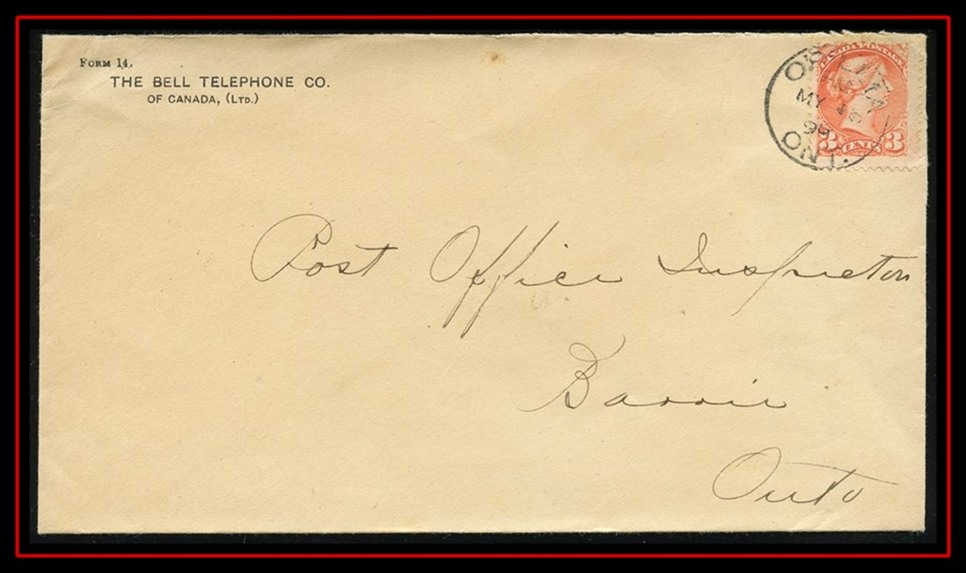 FORM 14.
THE BELL TELEPHONE CO.
OF CANADA, (LTD.)
CANADA POSTAGE
MY
ONT.
3 CENTS 3
Post Office Inspector
Barrie
Onto